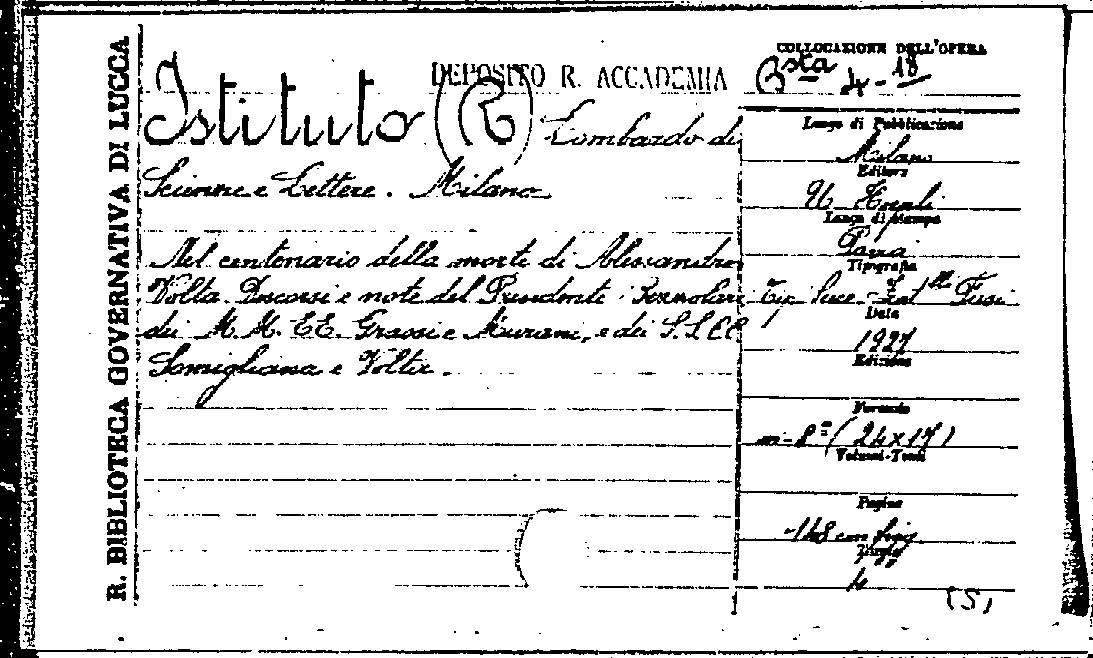 R. BIBLIOTECA GOVERNATIVA DI LUCCA
DEPOSITO R. ACCADEMIA
Istituto (R) Lombardo di
Scienze e Lettere. Milano
Nel centenario della morte di Alessandro
Volta. Discorsi e note del Presidente
dei M.M. EE. Grassi e Murani, e dei S.S. CC
Somigliana e Volta.
COLLOCAZIONE DELL'OPERA
Bsta 4-18
Luogo di Pubblicazione
Milano
Editore
U. Hoepli
Luogo di Stampa
Pavia
Tipografia
Tip. Succ. Fusi
Data
1927
Edizione
Formato
in-8° (24x17)
Volumi-Tomi
Pagine
-148 con fig
4
(S)